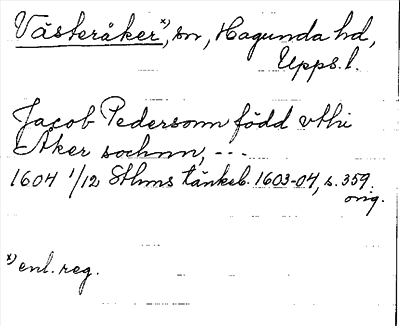 Västeråker x), sn, Hagunda hd,
Upps. l.
Jacob Pedersonn född vthi
Åker sochnn, ---
1604 1/12 Sthms tänkeb. 1603-04, s. 359.
orig.
x) enl. reg.